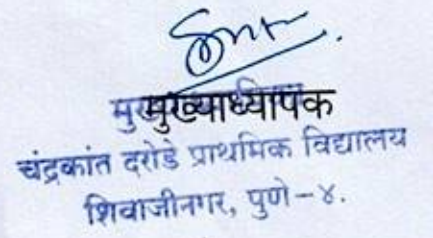 मुख्याध्यापक
चंद्रकांत दरोडे प्राथमिक विद्यालय
शिवाजीनगर, पुणे – ४.